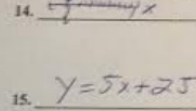 14. x
15. y=5x+25